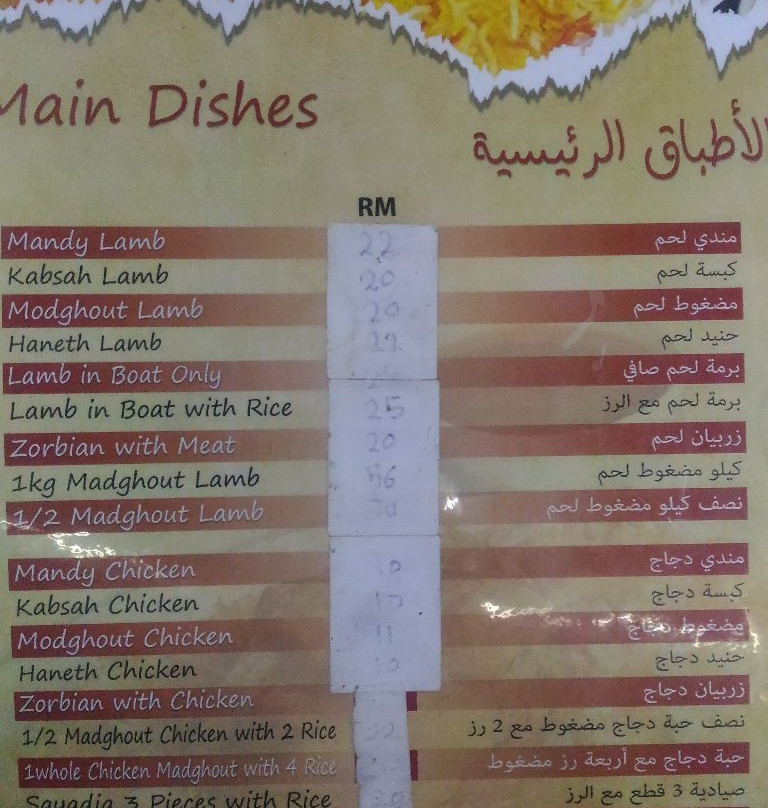 Main Dishes
الأطباق الرئيسية
RM
Mandy Lamb 22 مندي لحم
Kabsah Lamb 20 كبسة لحم
Modghout Lamb 20 مضغوط لحم
Haneth Lamb حنيد لحم
Lamb in Boat Only برمة لحم صافي
Lamb in Boat with Rice 25 برمة لحم مع الرز
Zorbian with Meat 20 زربيان لحم
1kg Madghout Lamb 56 كيلو مضغوط لحم
1/2 Madghout Lamb نصف كيلو مضغوط لحم
Mandy Chicken مندي دجاج
Kabsah Chicken كبسة دجاج
Modghout Chicken 11 مضغوط دجاج
Haneth Chicken 10 حنيد دجاج
Zorbian with Chicken زربيان دجاج
1/2 Madghout Chicken with 2 Rice نصف حبة دجاج مضغوط مع 2 رز
1whole Chicken Madghout with 4 Rice حبة دجاج مع أربعة رز مضغوط
Sayadia 3 Pieces with Rice صيادية 3 قطع مع الرز